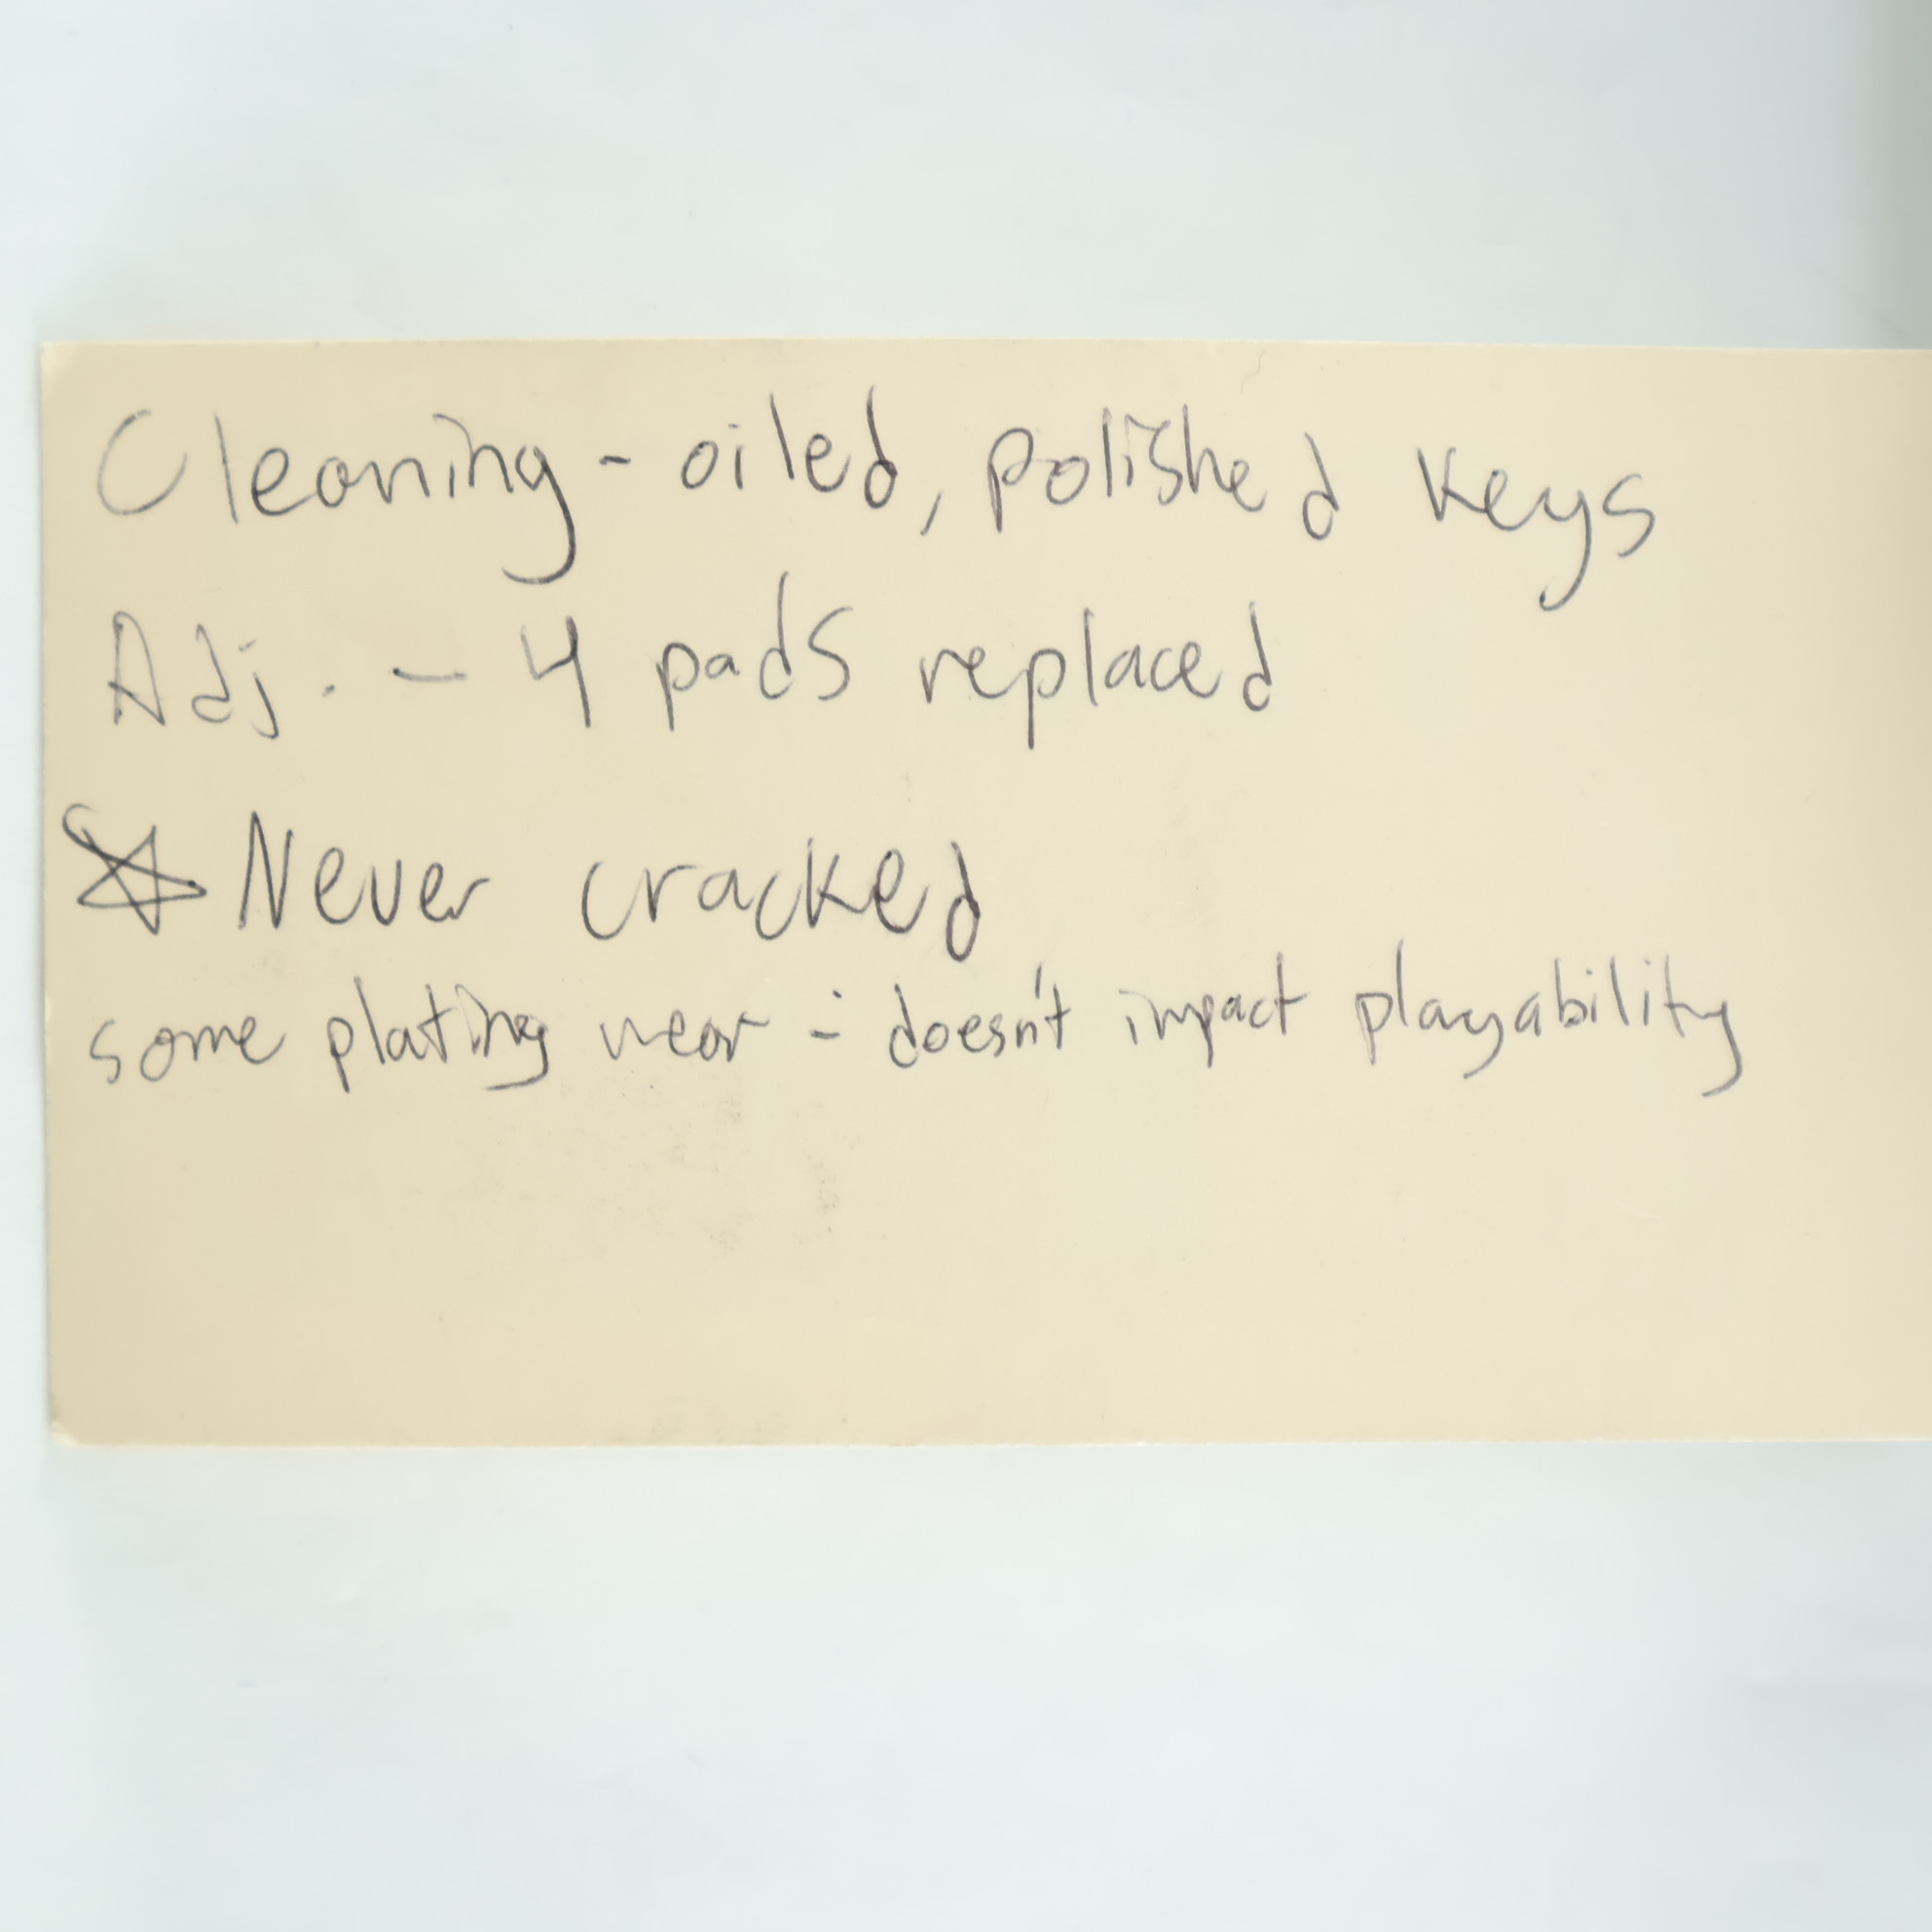 Cleaning - oiled, polished keys
Adj. - 4 pads replaced
☆ Never cracked
some plating wear - doesn't impact playability